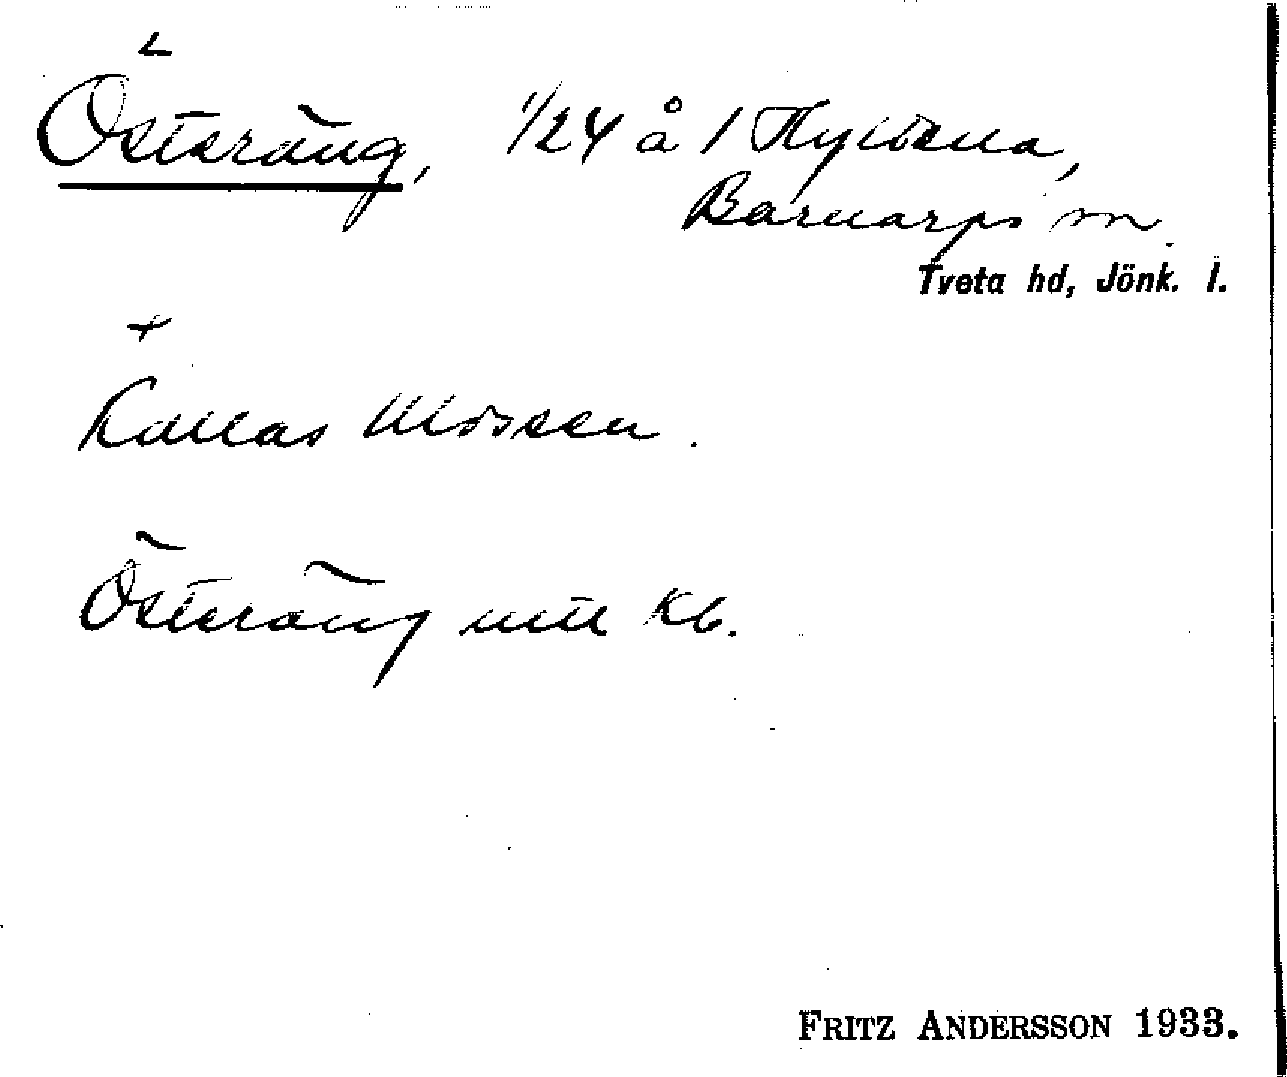 Österäng, 1/24 å 1 Hyltena,
Barnarps sn.
Tveta hd, Jönk. l.
Kallas Mossen.
Österäng enl. Kb.
FRITZ ANDERSSON 1933.